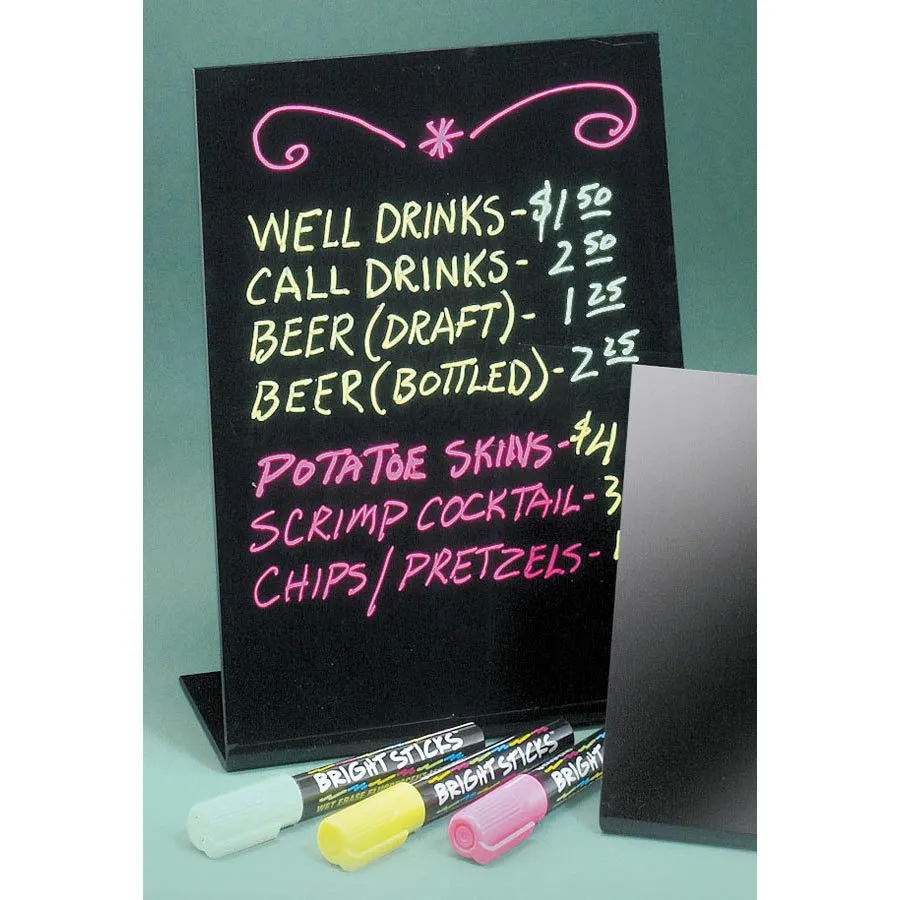 WELL DRINKS-$1 50
CALL DRINKS- 2 50
BEER (DRAFT)- 1 25
BEER (BOTTLED)-2 25
POTATOE SKINS-$4
SCRIMP COCKTAIL-3
CHIPS/PRETZELS-
BRIGHT STICKS
WET ERASE FLUORESCENT
BRIGHT STICKS
BRIGHT